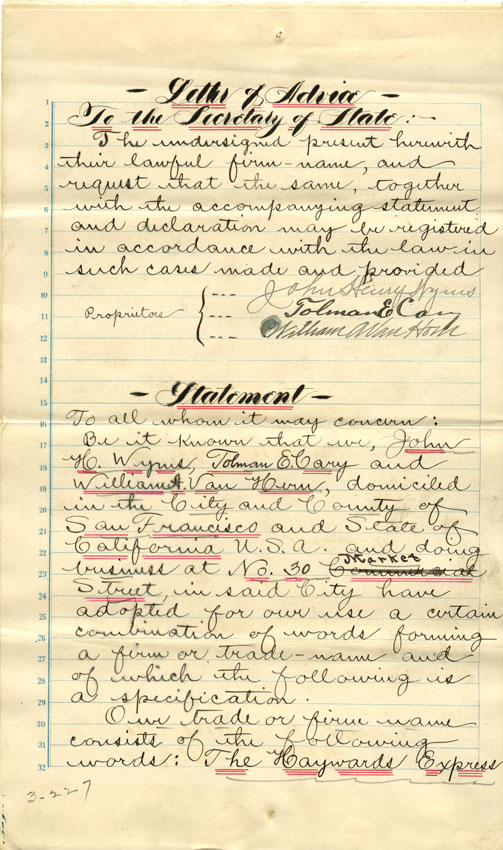 — Letter of Advice —
To the Secretary of State:—
The undersigned present herewith
their lawful firm-name, and
request that the same, together
with the accompanying statement
and declaration may be registered
in accordance with the law in
such cases made and provided
Proprietors { --- John Henry Wyms
--- Tolman E Cary
--- William
— Statement —
To all whom it may concern:
Be it known that we, John
H. Wyms, Tolman E. Cary and
William A. Van Horn, domiciled
in the City and County of
San Francisco and State of
California U.S.A. and doing
Market
business at No. 30 Commercial
Street, in said City have
adopted for our use a certain
combination of words forming
a firm or trade-name and
of which the following is
a specification.
Our trade or firm name
consists of the following
words: The Haywards Express
3-227
1
2
3
4
5
6
7
8
9
10
11
12
13
14
15
16
17
18
19
20
21
22
23
24
25
26
27
28
29
30
31
32